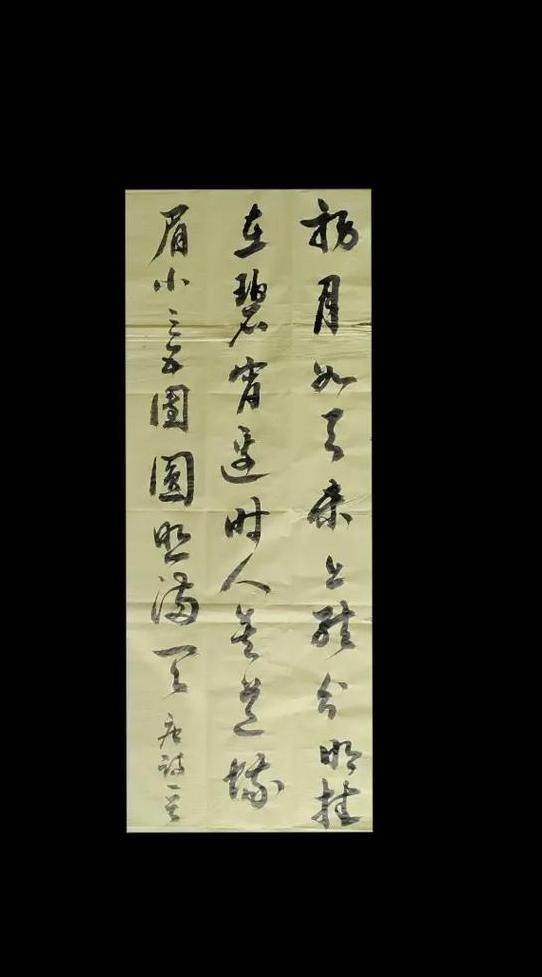 初月如弓未上弦分明挂
在碧霄边时人莫道蛾
眉小三五團圓照满天 唐诗一首